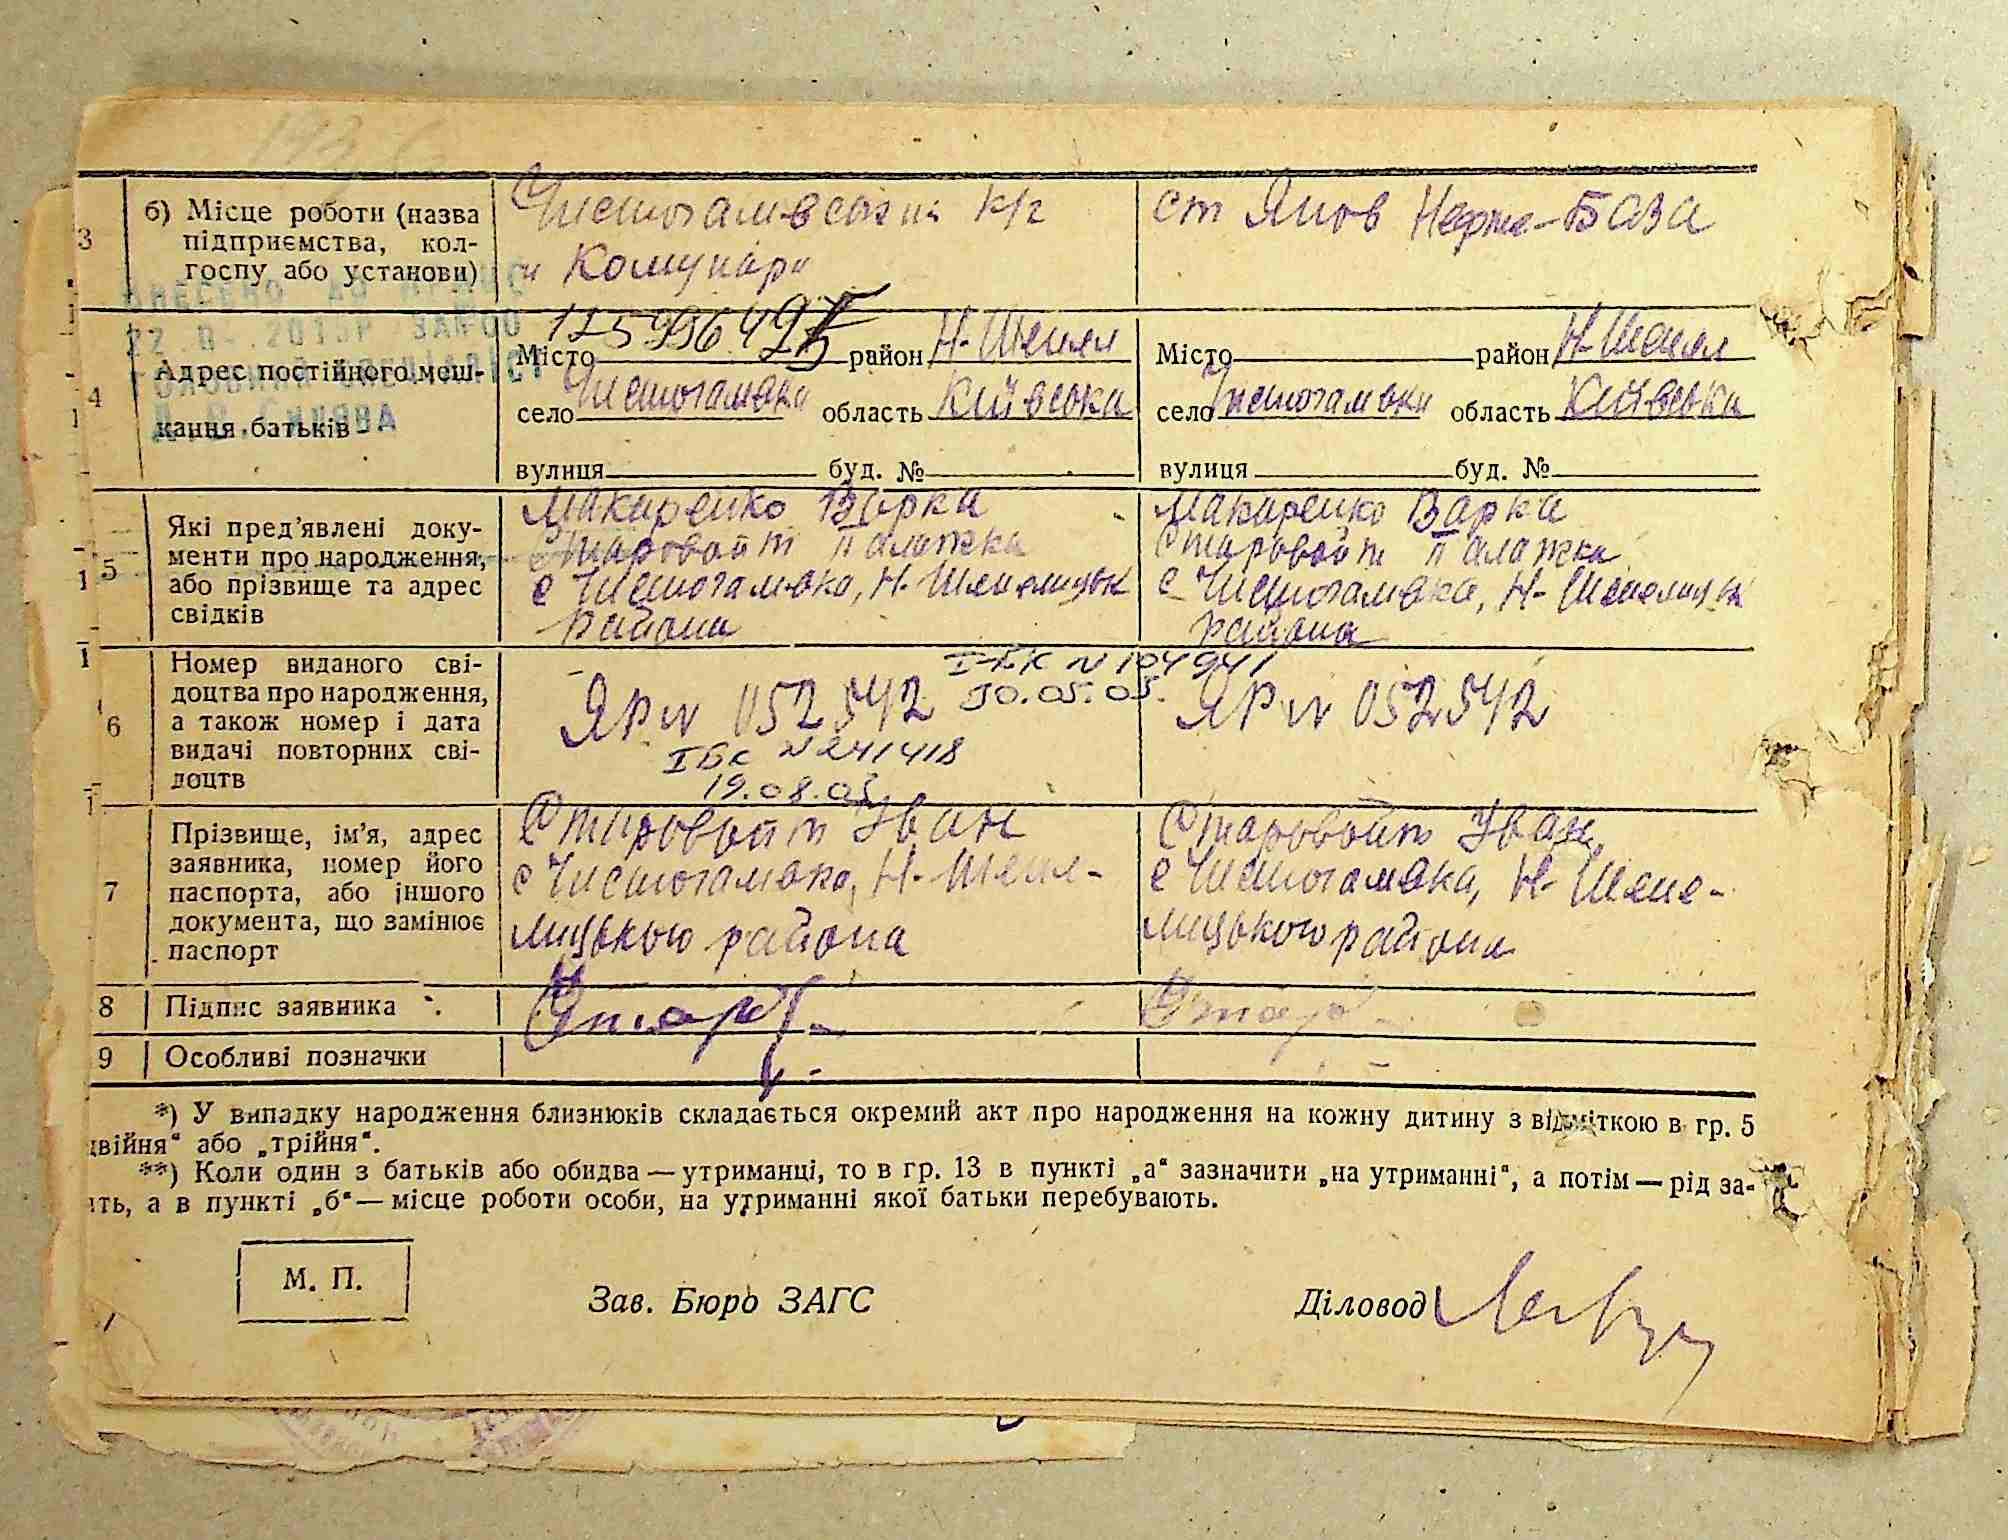 3
б) Місце роботи (назва
підприємства, кол-
госпу або установи)
к/г
„Комунар„
ст Янов Нефте-База
ВНЕСЕНО ДО
4
Адрес постійного меш-
кання батьків
Місто район Н-Шепел
село Чистогаловка область Київська
вулиця буд. №
Місто район Н-Шепел
село Чистогаловка область Київська
вулиця буд. №
5
Які пред'явлені доку-
менти про народження,
або прізвище та адрес
свідків
Макаренко Варка
Старовойт Палажка
с Чистогаловка, Н-Шепелицьк
района
Макаренко Варка
Старовойт Палажка
с Чистогаловка, Н-Шепелицьк
района
6
Номер виданого сві-
доцтва про народження,
а також номер і дата
видачі повторних сві-
доцтв
І-БК N 104941
30.05.05.
ЯР N 052542
ІБК N 241418
19.08.05
ЯР N 052542
7
Прізвище, ім'я, адрес
заявника, номер його
паспорта, або іншого
документа, що замінює
паспорт
Старовойт Іван
с Чистогаловка, Н-Шепе-
лицького района
Старовойт Іван
с Чистогаловка, Н-Шепе-
лицького района
8
Підпис заявника
Старо
Старо
9
Особливі позначки
*) У випадку народження близнюків складається окремий акт про народження на кожну дитину з відміткою в гр. 5
двійня" або „трійня".
**) Коли один з батьків або обидва — утриманці, то в гр. 13 в пункті „а" зазначити „на утриманні", а потім — рід за-
ть, а в пункті „б" — місце роботи особи, на утриманні якої батьки перебувають.
М. П.
Зав. Бюро ЗАГС
Діловод